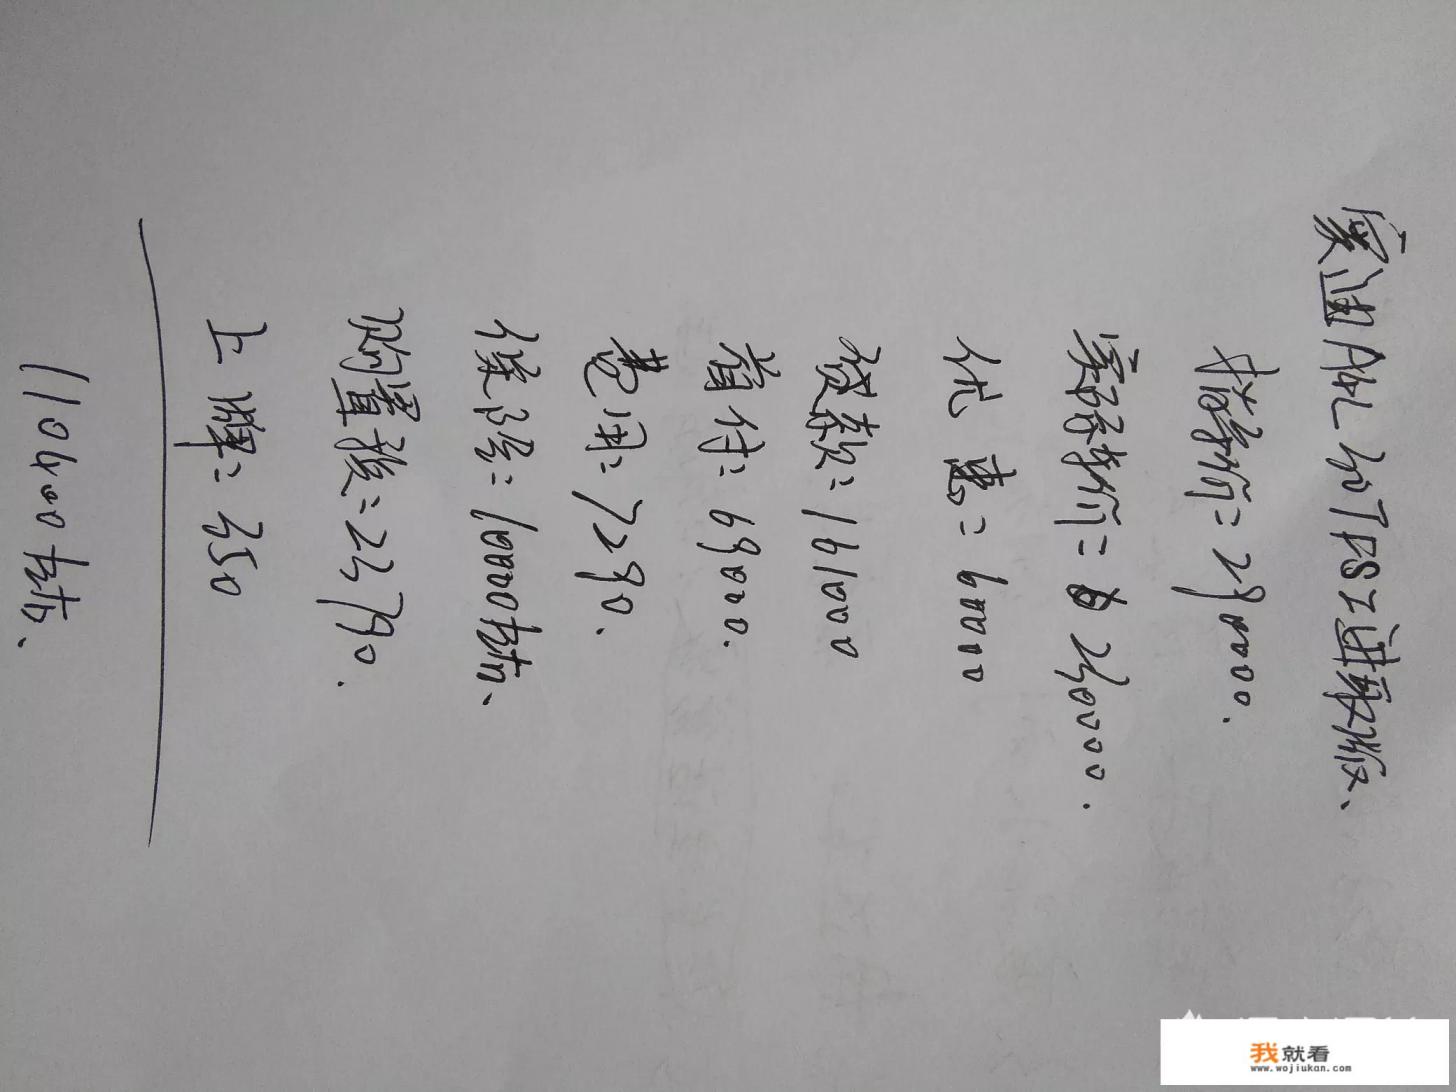 奥迪A4L 40TFSI进取版、
指导价=290000.
价=230000.
优惠=60000
贷款=161000
首付=69000.
费用=7290.
保险=10000左右、
购置税=23790.
上牌=350
110400左右、
我就看
www.wojiukan.com